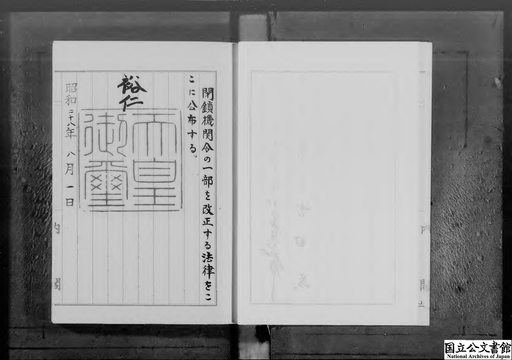 閉鎖機関令の一部を改正する法律をこ
こに公布する。
裕仁
天皇
御璽
昭和二十八年八月一日
内閣
国立公文書館
National Archives of Japan